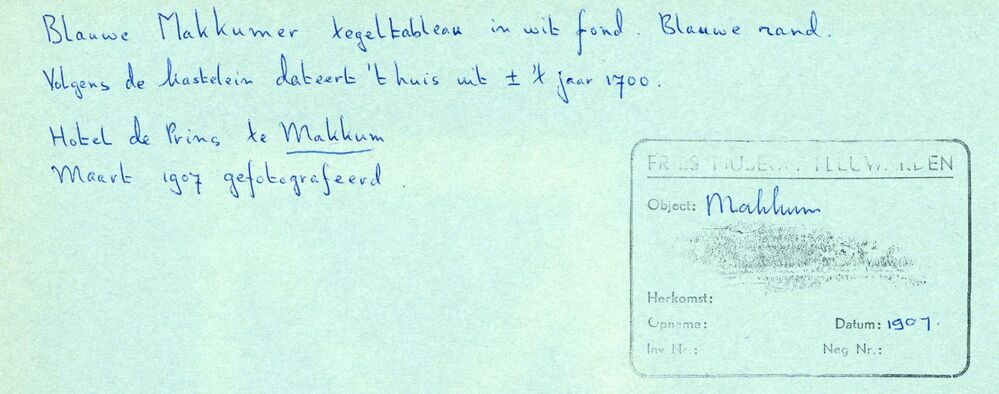 Blauwe Makkumer tegeltableau in wit fond. Blauwe rand.
Volgens de kastelein dateert 't huis uit ± 't jaar 1700.
Hotel de Prins te Makkum
Maart 1907 gefotografeerd.
FRIES MUSEUM LEEUWARDEN
Object: Makkum
Herkomst:
Opname:
Datum: 1907.
Inv Nr.:
Neg Nr.: